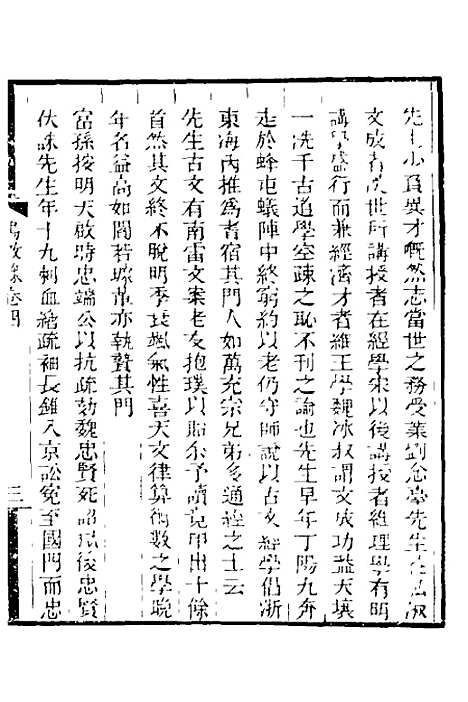 先生少負異才慨然志當世之務受業劉念臺先生在私淑
文成者次世所講授者在經學宋以後講授者維理學有明
講學盛行而兼經濟才者維王學魏冰叔謂文成功蓋天壤
一洗千古道學空疎之恥不刊之論也先生早年丁陽九奔
走於蜂屯蟻陣中終窮約以老仍守師說以古文經學倡浙
東海內推為耆宿其門人如萬充宗兄弟多通經之士云
先生古文有南雷文案老友抱璞以貽余予讀竟甲出十餘
首然其文終不脫明季衰颯氣性喜天文律算術數之學晚
年名益高如閻若璩輩亦執贄其門
富孫按明天啟時忠端公以抗疏劾魏忠賢死詔獄後忠賢
伏誅先生年十九刺血繕疏袖長錐入京訟冤至國門而忠
卷四
三